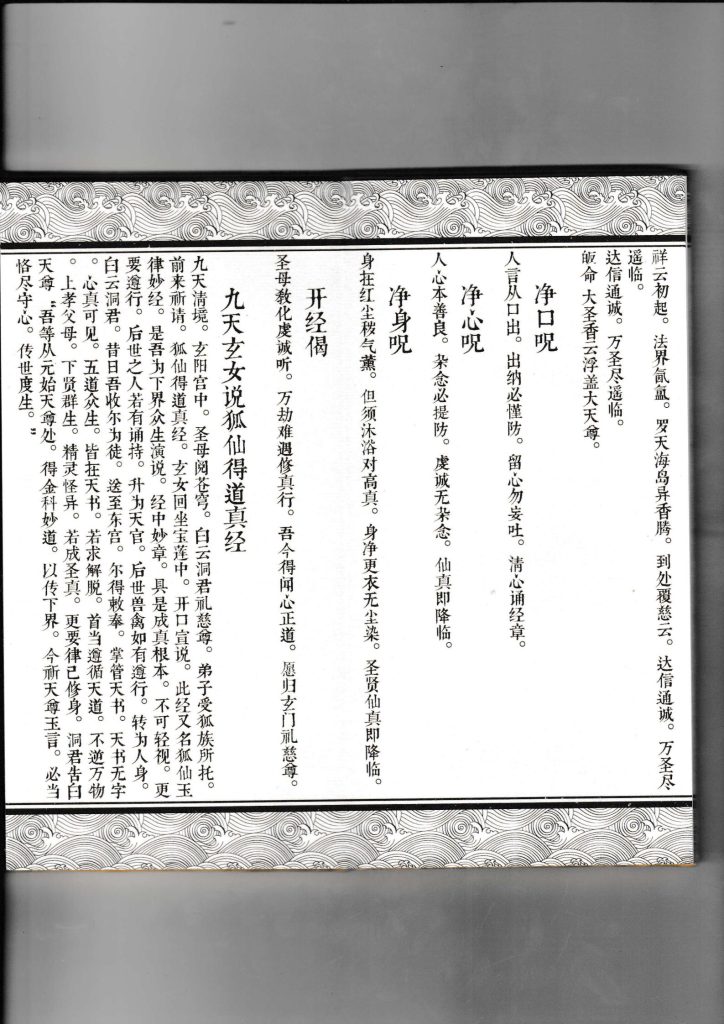 祥云初起。法界氤氲。罗天海岛异香腾。到处覆慈云。达信通诚。万圣尽
遥临。
达信通诚。万圣尽遥临。
皈命 大圣香云浮盖大天尊。
净口呪
人言从口出。出纳必慬防。留心勿妄吐。清心诵经章。
净心呪
人心本善良。杂念必提防。虔诚无杂念。仙真即降临。
净身呪
身在红尘秽气薰。但须沐浴对高真。身净更衣无尘染。圣贤仙真即降临。
开经偈
圣母教化虔诚听。万劫难遇修真行。吾今得闻心正道。愿归玄门礼慈尊。
九天玄女说狐仙得道真经
九天清境。玄阳宫中。圣母阅苍穹。白云洞君礼慈尊。弟子受狐族所托。
前来祈请。狐仙得道真经。玄女回坐宝莲中。开口宣说。此经又名狐仙玉
律妙经。是吾为下界众生演说。经中妙章。具是成真根本。不可轻视。更
要遵行。后世之人若有诵持。升为天官。后世兽禽如有遵行。转为人身。
白云洞君。昔日吾收尔为徒。送至东宫。尔得敕奉。掌管天书。天书无字
。心真可见。五道众生。皆在天书。若求解脱。首当遵循天道。不逆万物
。上孝父母。下贤群生。精灵怪异。若成圣真。更要律己修身。洞君告白
天尊“吾等从元始天尊处。得金科妙道。以传下界。今祈天尊玉言。必当
恪尽守心。传世度生。”